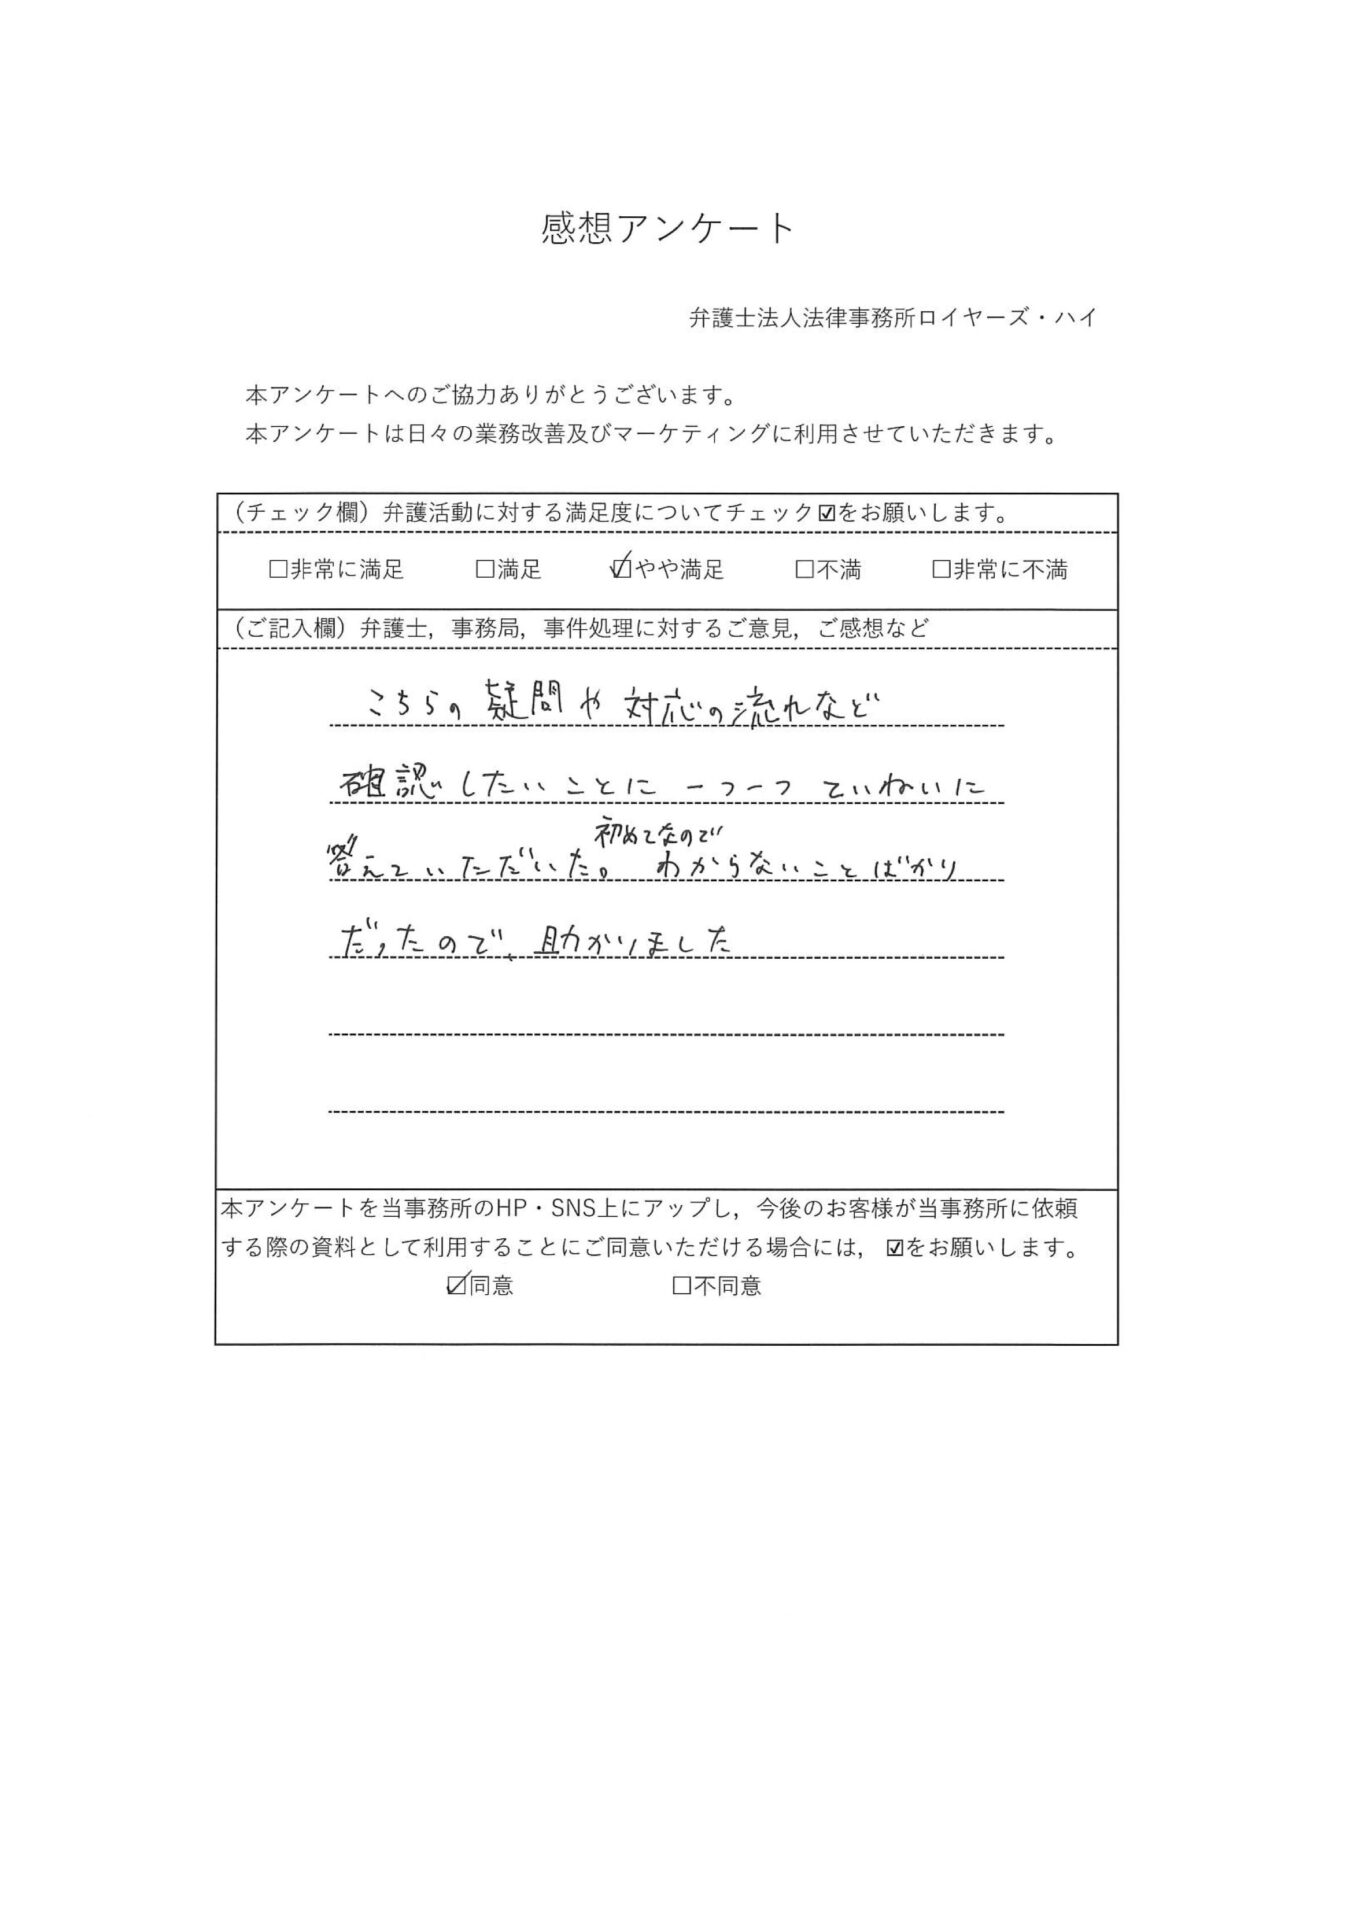 感想アンケート
弁護士法人法律事務所ロイヤーズ・ハイ
本アンケートへのご協力ありがとうございます。
本アンケートは日々の業務改善及びマーケティングに利用させていただきます。
（チェック欄）弁護活動に対する満足度についてチェック☑をお願いします。
□非常に満足 □満足 ☑やや満足 □不満 □非常に不満
（ご記入欄）弁護士，事務局，事件処理に対するご意見，ご感想など
こちらの疑問や対応の流れなど
確認したいことに一つ一つていねいに
初めてなので
答えていただいた。わからないことばかり
だったので、助かりました
本アンケートを当事務所のHP・SNS上にアップし，今後のお客様が当事務所に依頼
する際の資料として利用することにご同意いただける場合には，☑をお願いします。
☑同意 □不同意